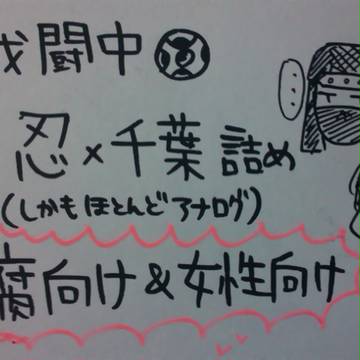 戦闘中
忍×千葉詰め
(しかもほとんどアナログ)
腐向け&女性向け